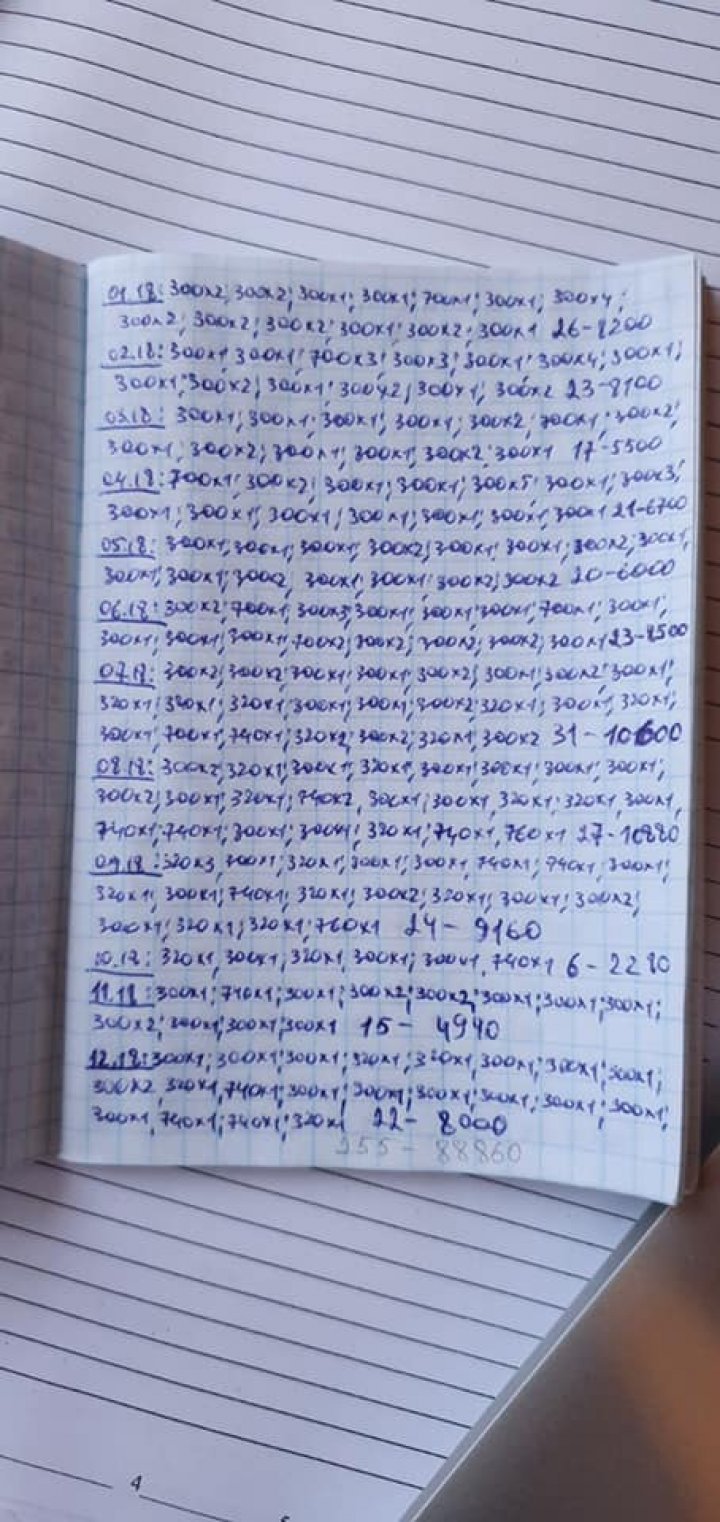 01.18: 300x2; 300x2; 300x1; 300x1; 700x1; 300x1; 300x4;
300x2; 300x2; 300x2; 300x1; 300x2; 300x1 26-8200
02.18: 300x1; 300x1; 700x3; 300x3; 300x1; 300x4; 300x1;
300x1; 300x2; 300x1; 300x2; 300x1; 300x2 23-8100
03.18: 300x1; 300x1; 300x1; 300x1; 300x2; 700x1; 300x2;
300x1; 300x2; 300x1; 300x1; 300x2; 300x1 17-5500
04.18: 700x1; 300x2; 300x1; 300x1; 300x5; 300x1; 300x3;
300x1; 300x1; 300x1; 300x1; 300x1; 300x1; 300x1 21-6700
05.18: 300x1; 300x1; 300x1; 300x2; 300x1; 300x1; 300x2; 300x1;
300x1; 300x1; 300x2; 300x1; 300x1; 300x2; 300x2 20-6000
06.18: 300x2; 700x1; 300x3; 300x1; 300x1; 300x1; 700x1; 300x1;
300x1; 300x1; 300x1; 700x2; 300x2; 300x2; 300x2; 300x1 23-8500
07.18: 300x2; 300x2; 300x1; 300x1; 300x2; 300x1; 300x2; 300x1;
320x1; 320x1; 320x1; 300x1; 300x1; 300x2; 320x1; 300x1; 320x1;
300x1; 700x1; 740x1; 320x2; 300x2; 320x1; 300x2 31-10600
08.18: 300x2; 320x1; 300x1; 320x1; 300x1; 300x1; 300x1; 300x1;
300x2; 300x1; 320x1; 740x2; 300x1; 300x1; 320x1; 320x1; 300x1;
740x1; 740x1; 300x1; 300x1; 320x1; 740x1; 760x1 27-10880
09.18: 320x3; 300x1; 320x1; 300x1; 300x1; 740x1; 740x1; 300x1;
320x1; 300x1; 740x1; 320x1; 300x2; 320x1; 300x1; 300x2;
300x1; 320x1; 320x1; 760x1 24-9160
10.18: 320x1, 300x1, 320x1, 300x1; 300x1, 740x1 6-2280
11.18: 300x1; 740x1; 300x1; 300x2; 300x2; 300x1; 300x1; 300x1;
300x2; 300x1; 300x1; 300x1 15-4940
12.18: 300x1; 300x1; 300x1; 320x1; 320x1, 300x1; 300x1; 300x1;
300x2, 320x1, 740x1; 300x1; 300x1; 300x1; 300x1; 300x1; 300x1;
300x1, 740x1; 740x1; 320x1 22-8000
255-88860